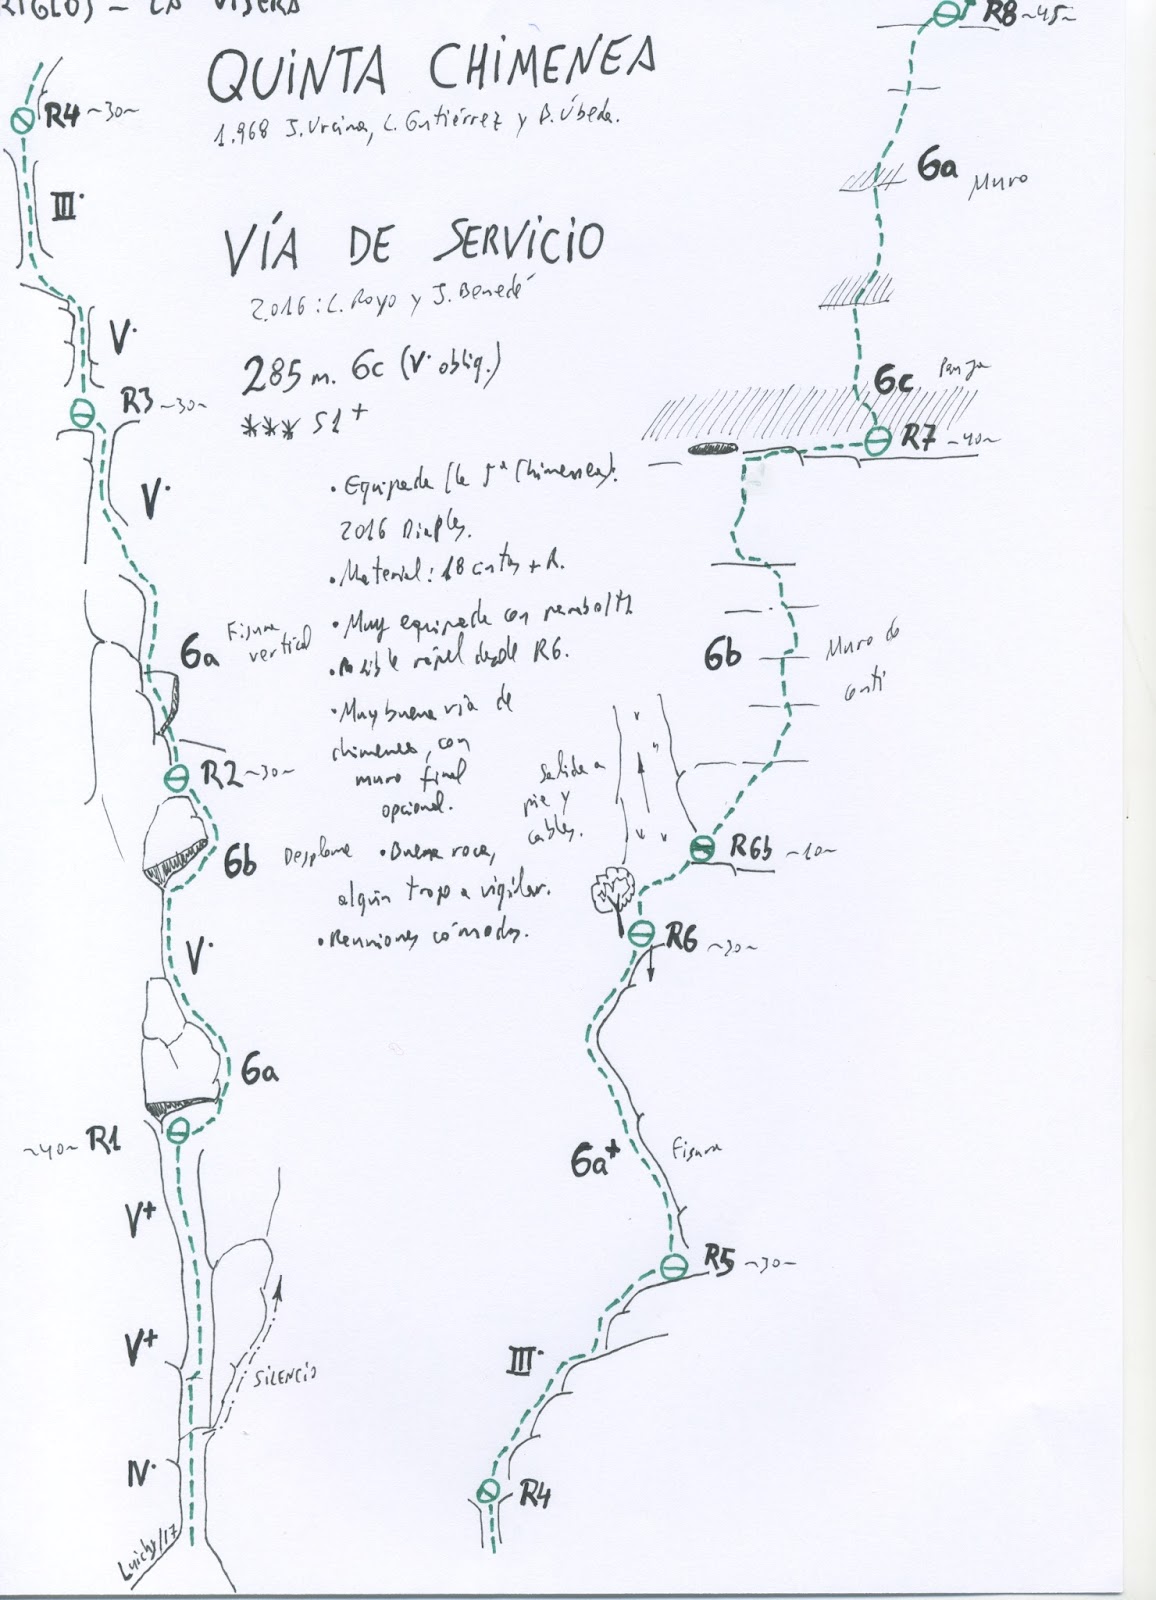 RIGLOS - LA VISERA
QUINTA CHIMENEA
1.968 J. Ursina, L. Gutiérrez y A. Úbeda.
VÍA DE SERVICIO
2.016: L. Royo y J. Benedé
285 m. 6c (V· oblig.)
*** S1+
· Equipada (la 5ª Chimenea):
2016
· Material: 18 cintas + A.
· Muy equipada con parabolts
· Posible rápel desde R6.
· Muy buena vía de
chimenea, con
muro final
opcional.
· Buena roca,
algún tropo a vigilar.
· Reuniones cómodas.
R4 ~30~
III·
V·
R3 ~30~
V·
6a Fisura
vertical
R2 ~30~
6b Desplome
V·
6a
~40~ R1
V+
V+
SILENCIO
IV·
Luichy/17
R8 ~45~
6a Muro
6c Panza
R7 ~40~
6b Muro de
conti
Salida a
pie y
cables.
R6b ~10~
R6 ~30~
6a+ Fisura
R5 ~30~
III·
R4